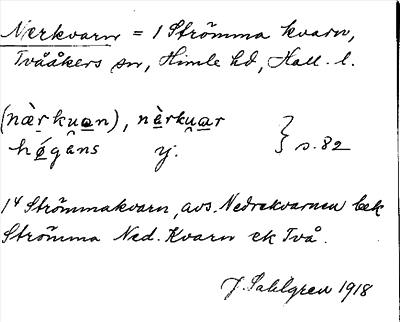 Nerkvarn = 1 Strömma kvarn,
Tvååkers sn, Himle hd, Hall. l.
(nær̀ku̯an), nær̀ku̯ar
hǿgåns yj. } s. 82
1⁴ Strömmakvarn, avs. Nedrekvarnen bek
Strömma Ned. Kvarn ek Två.
J. Sahlgren 1918